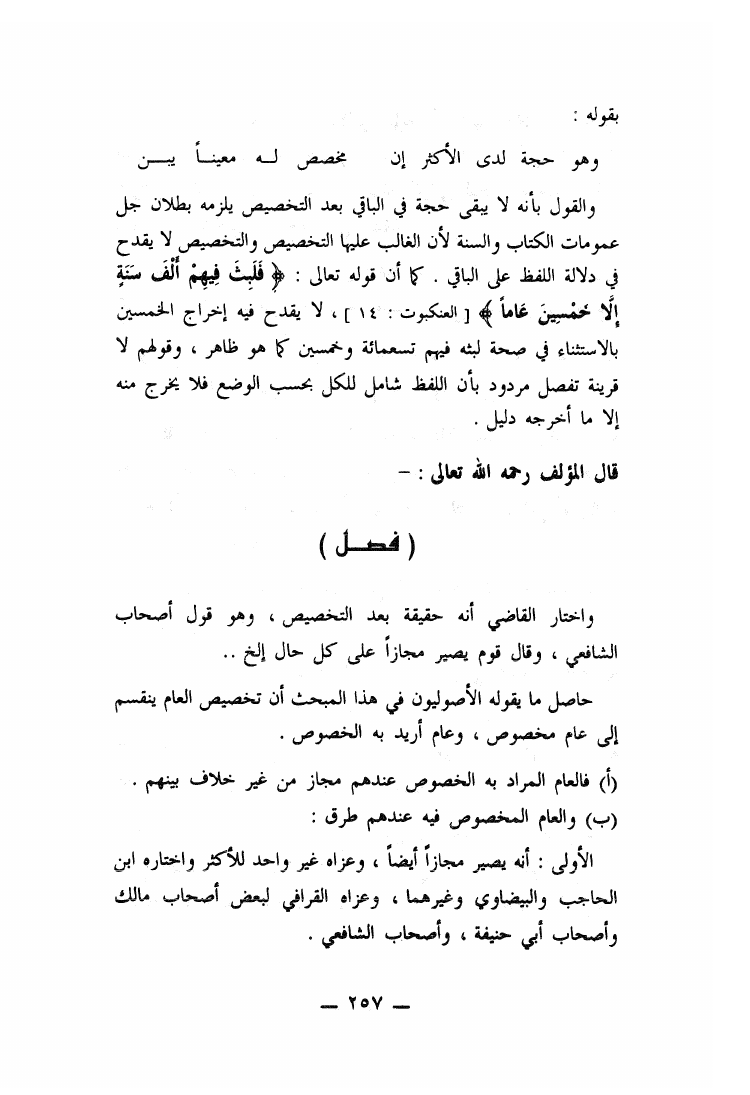 بقوله :
وهو حجة لدى الأكثر إن مخصص لــه معينــاً يبــــن
والقول بأنه لا يبقى حجة في الباقي بعد التخصيص يلزمه بطلان جل
عمومات الكتاب والسنة لأن الغالب عليها التخصيص والتخصيص لا يقدح
في دلالة اللفظ على الباقي . كما أن قوله تعالى : ﴿ فَلَبِثَ فِيهِمْ أَلْفَ سَنَةٍ
إِلَّا خَمْسِينَ عَاماً ﴾ [ العنكبوت : ١٤ ] ، لا يقدح فيه إخراج الخمسين
بالاستثناء في صحة لبثه فيهم تسعمائة وخمسين كما هو ظاهر ، وقولهم لا
قرينة تفصل مردود بأن اللفظ شامل للكل بحسب الوضع فلا يخرج منه
إلا ما أخرجه دليل .
قال المؤلف رحمه الله تعالى : –
( فصــل )
واختار القاضي أنه حقيقة بعد التخصيص ، وهو قول أصحاب
الشافعي ، وقال قوم يصير مجازاً على كل حال إلخ ..
حاصل ما يقوله الأصوليون في هذا المبحث أن تخصيص العام ينقسم
إلى عام مخصوص ، وعام أريد به الخصوص .
(أ) فالعام المراد به الخصوص عندهم مجاز من غير خلاف بينهم .
(ب) والعام المخصوص فيه عندهم طرق :
الأولى : أنه يصير مجازاً أيضاً ، وعزاه غير واحد للأكثر واختاره ابن
الحاجب والبيضاوي وغيرهما ، وعزاه القرافي لبعض أصحاب مالك
وأصحاب أبي حنيفة ، وأصحاب الشافعي .
— ٢٥٧ —